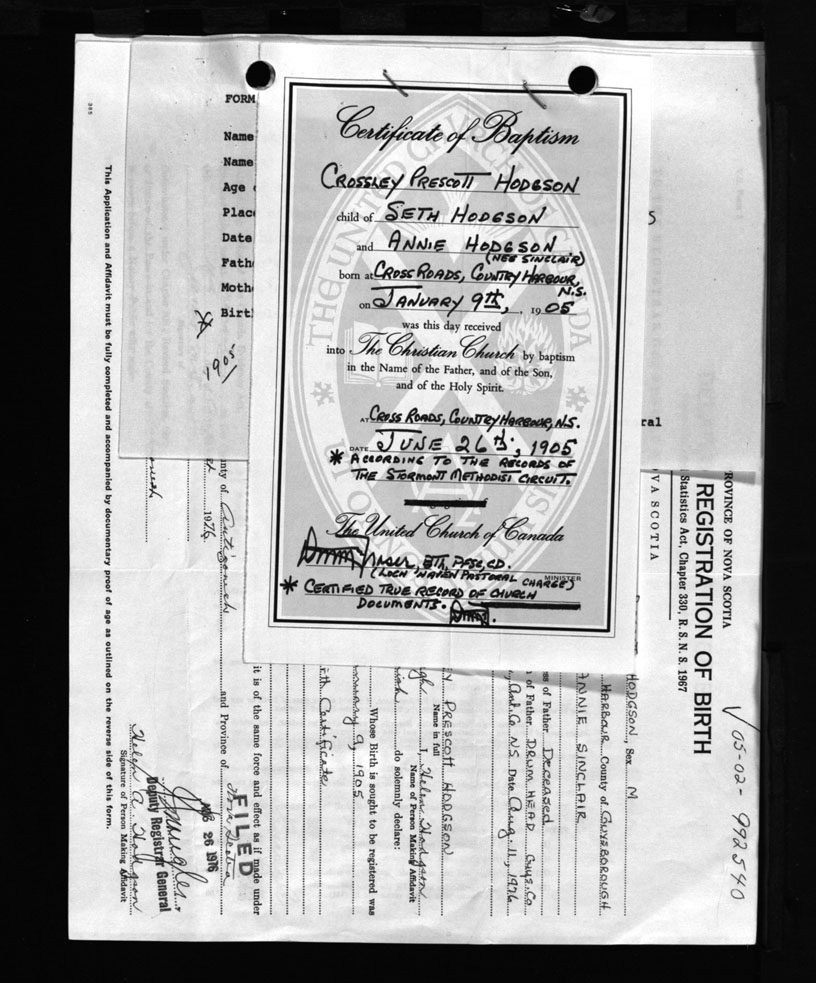 Certificate of Baptism
CROSSLEY PRESCOTT HODGSON
child of SETH HODGSON
and ANNIE HODGSON
(NEE SINCLAIR)
born at CROSS ROADS, COUNTRY HARBOUR,
N.S.
on JANUARY 9th, , 1905
was this day received
into The Christian Church by baptism
in the Name of the Father, and of the Son,
and of the Holy Spirit.
AT CROSS ROADS, COUNTRY HARBOUR, N.S.
DATE JUNE 26th, 1905
* ACCORDING TO THE RECORDS OF
THE STORMONT METHODIST CIRCUIT.
The United Church of Canada
MINISTER
(LOCH HAVEN PASTORAL CHARGE)
* CERTIFIED TRUE RECORD OF CHURCH
DOCUMENTS.
THE UNITED CHURCH OF CANADA
FORM
Name
Name
Age
Place
Date
Fath
Moth
Birt
1905
5
al
PROVINCE OF NOVA SCOTIA
REGISTRATION OF BIRTH
Statistics Act, Chapter 330, R. S. N. S. 1967
VA SCOTIA
05-02-992540
HODGSON, Sex M
HARBOUR County of GUYSBOROUGH
ANNIE SINCLAIR
ss of Father Deceased
of Father DRUM HEAD GUYS. CO
Ant. Co N.S Date Aug. 11, 1976
EY PRESCOTT HODGSON
Name in full
I, Helen Hodgson
Name of Person Making Affidavit
do solemnly declare:
Whose Birth is sought to be registered was
January 9, 1905
irth Certificate
it is of the same force and effect as if made under
nty of Antigonish and Province of Nova Scotia
1976.
FILED
AUG 26 1976
Deputy Registrar General
Helen A. Hodgson
Signature of Person Making Affidavit
This Application and Affidavit must be fully completed and accompanied by documentary proof of age as outlined on the reverse side of this form.